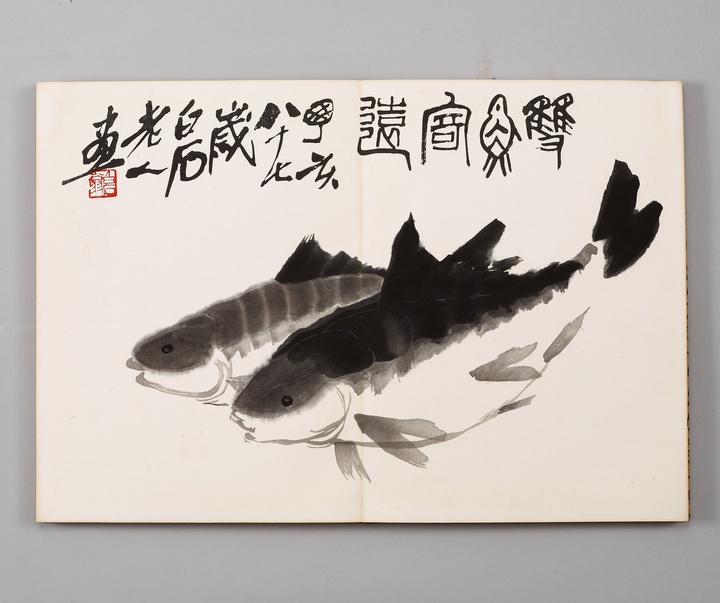 雙魚寄遠
亥
八十七
歲
白石
老人
畫